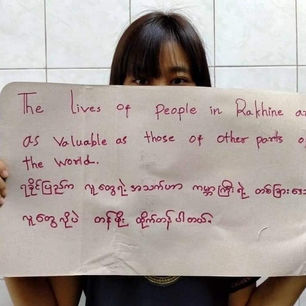 The lives of people in Rakhine are
as valuable as those of other parts of
the world.
ရခိုင်ပြည်က လူတွေရဲ့ အသက်ဟာ ကမ္ဘာကြီးရဲ့ တစ်ခြား
လူတွေလိုပဲ တန်ဖိုး ထိုက်တန်ပါတယ်။